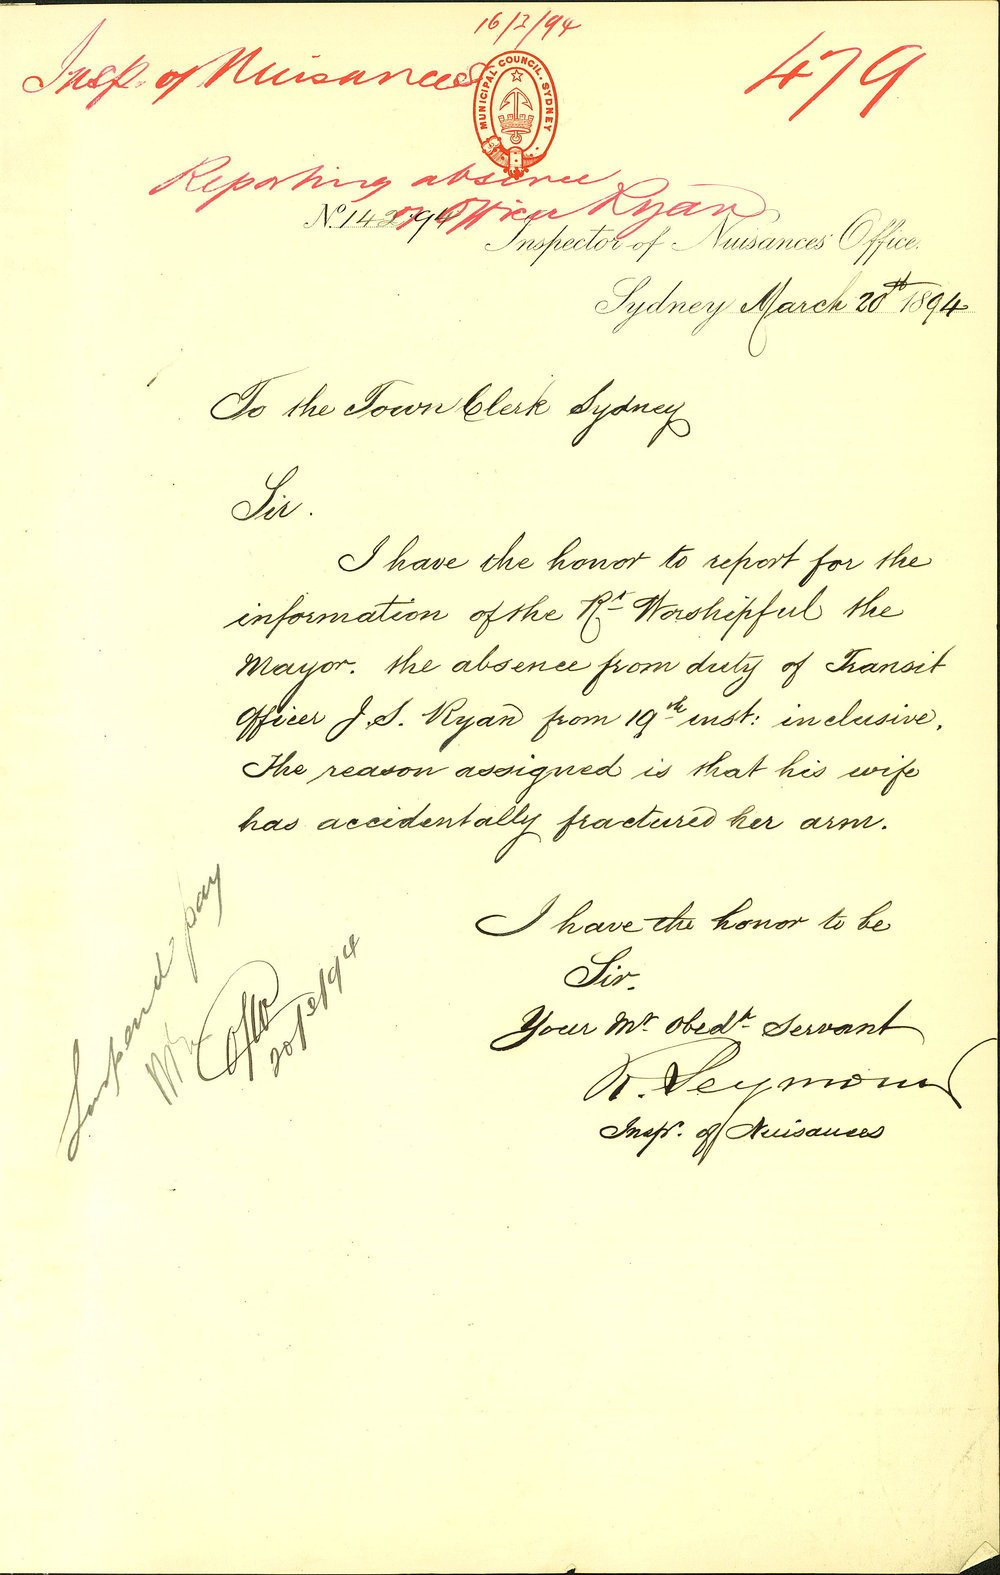 16/3/94
Insp. of Nuisances
479
MUNICIPAL COUNCIL. SYDNEY
Reporting absence
of Officer Ryan
No. 142/94
Inspector of Nuisances Office.
Sydney March 20th 1894
To the Town Clerk Sydney
Sir.
I have the honor to report for the
information of the Rt Worshipful the
Mayor. the absence from duty of Transit
Officer J. S. Ryan from 19th inst: inclusive.
The reason assigned is that his wife
has accidentally fractured her arm.
I have the honor to be
Sir.
Your Mt Obedt Servant
R. Seymour
Inspr. of Nuisances
Suspend pay
20/3/94